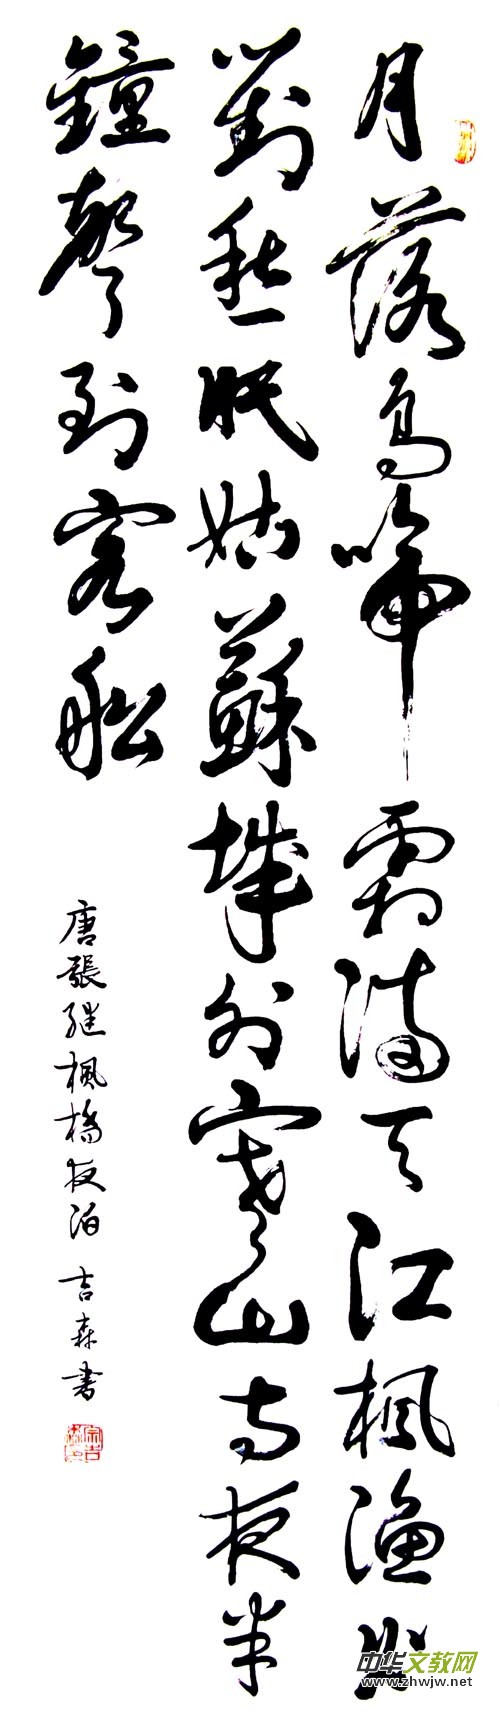 月落烏啼霜滿天江楓漁火
對愁眠姑蘇城外寒山寺夜半
鐘聲到客船
唐張継楓橋夜泊 吉森書
中华文教网
www.zhwjw.net